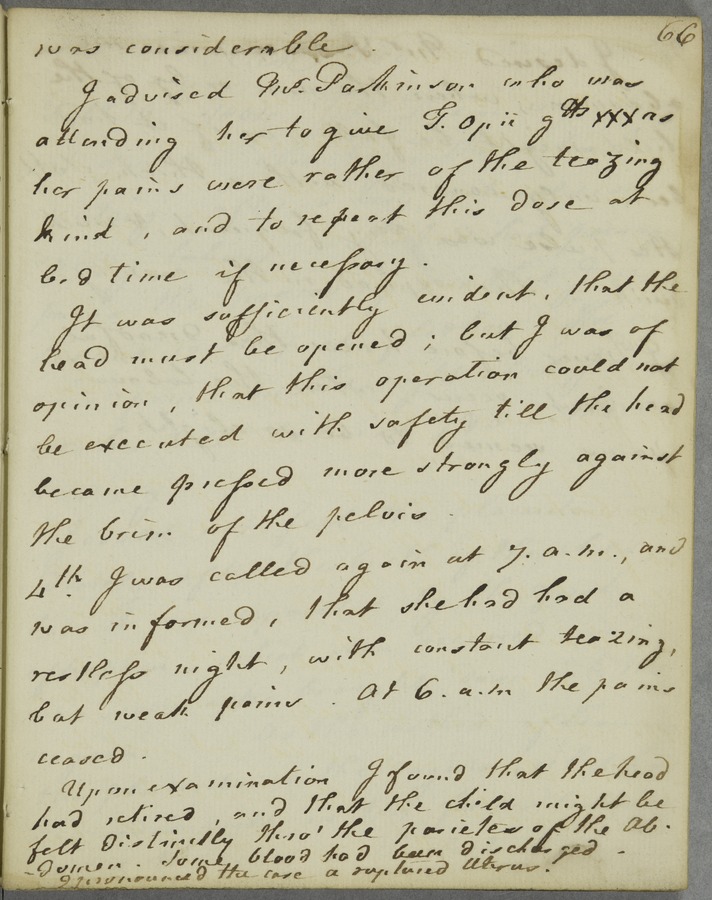 66
was considerable.
I advised Mr. Parkinson who was
attending her to give T. Opii gtts xxx as
her pains were rather of the teazing
kind, and to repeat this dose at
bed time if necessary.
It was sufficiently evident, that the
head must be opened; but I was of
opinion, that this operation could not
be executed with safety till the head
became pressed more strongly against
the brim of the pelvis.
4th. I was called again at 7. a.m., and
was informed, that she had had a
restless night, with constant teazing,
but weak pains. At 6. a.m the pains
ceased.
Upon examination I found that the head
had retired, and that the child might be
felt distinctly thro' the parietes of the Ab-
-domen. Some blood had been discharged.
I pronounced the case a ruptured Uterus.